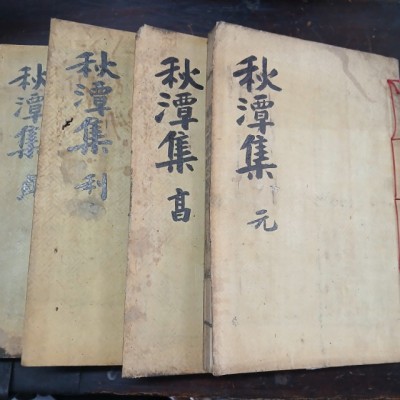 秋潭集 元
秋潭集 亯
秋潭集 利
秋潭集 貞